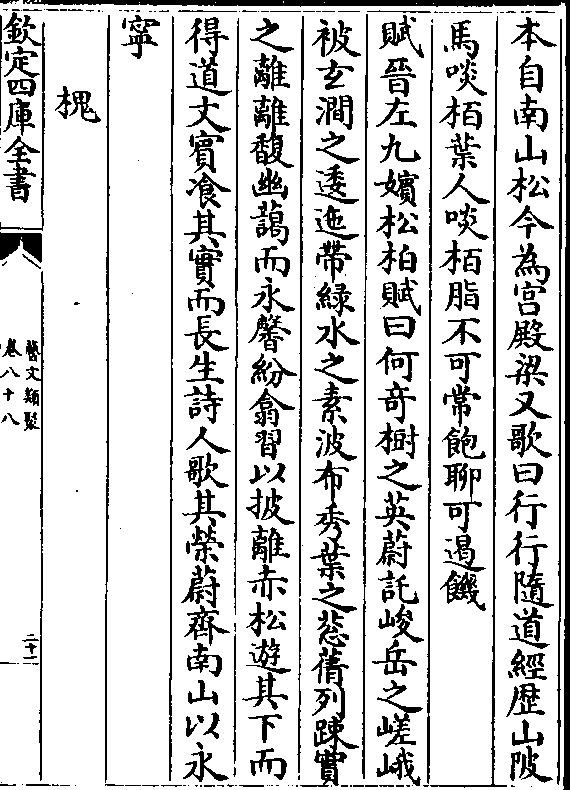 本自南山松今為宫殿梁又歌曰行行隨道經歴山陂
馬啖栢葉人啖栢脂不可常飽聊可遏饑
賦晉左九嬪松柏賦曰何奇樹之英蔚託峻岳之嵯峨
被玄澗之逶迤帶緑水之素波布秀葉之蔥蒨列疎實
之離離馥幽藹而永馨紛翕習以披離赤松遊其下而
得道文賓飡其實而長生詩人歌其榮蔚齊南山以永
寧
槐
欽定四庫全書
藝文類聚
卷八十八
二十一